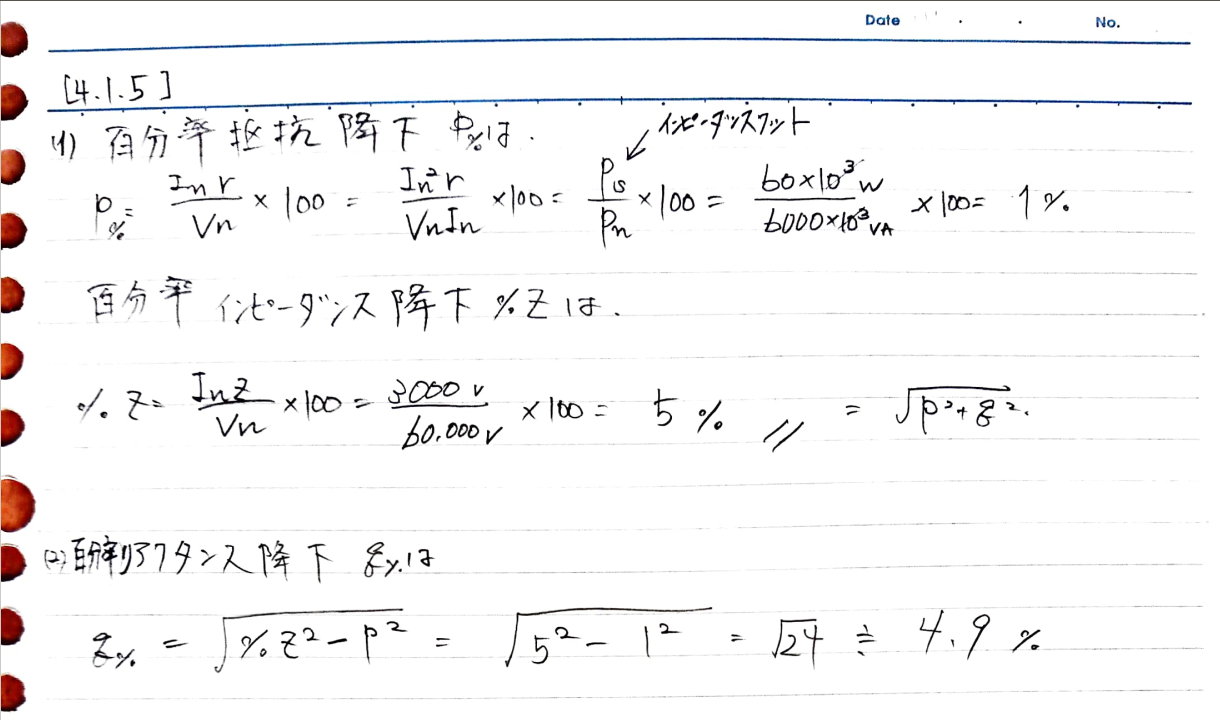 Date No.
[4.1.5]
(1) 百分率抵抗降下 P%は.
インピーダンスワット
P% = Inr/Vn × 100 = In²r/VnIn ×100 = Ps/Pn ×100 = 60×10³W/6000×10³VA ×100= 1%.
百分率インピーダンス降下 %Zは.
%Z= InZ/Vn ×100 = 3000V/60.000V ×100 = 5% // = √p²+q².
(2) 百分率リアクタンス降下 q%は
q% = √%Z²-p² = √5²-1² = √24 ≒ 4.9%